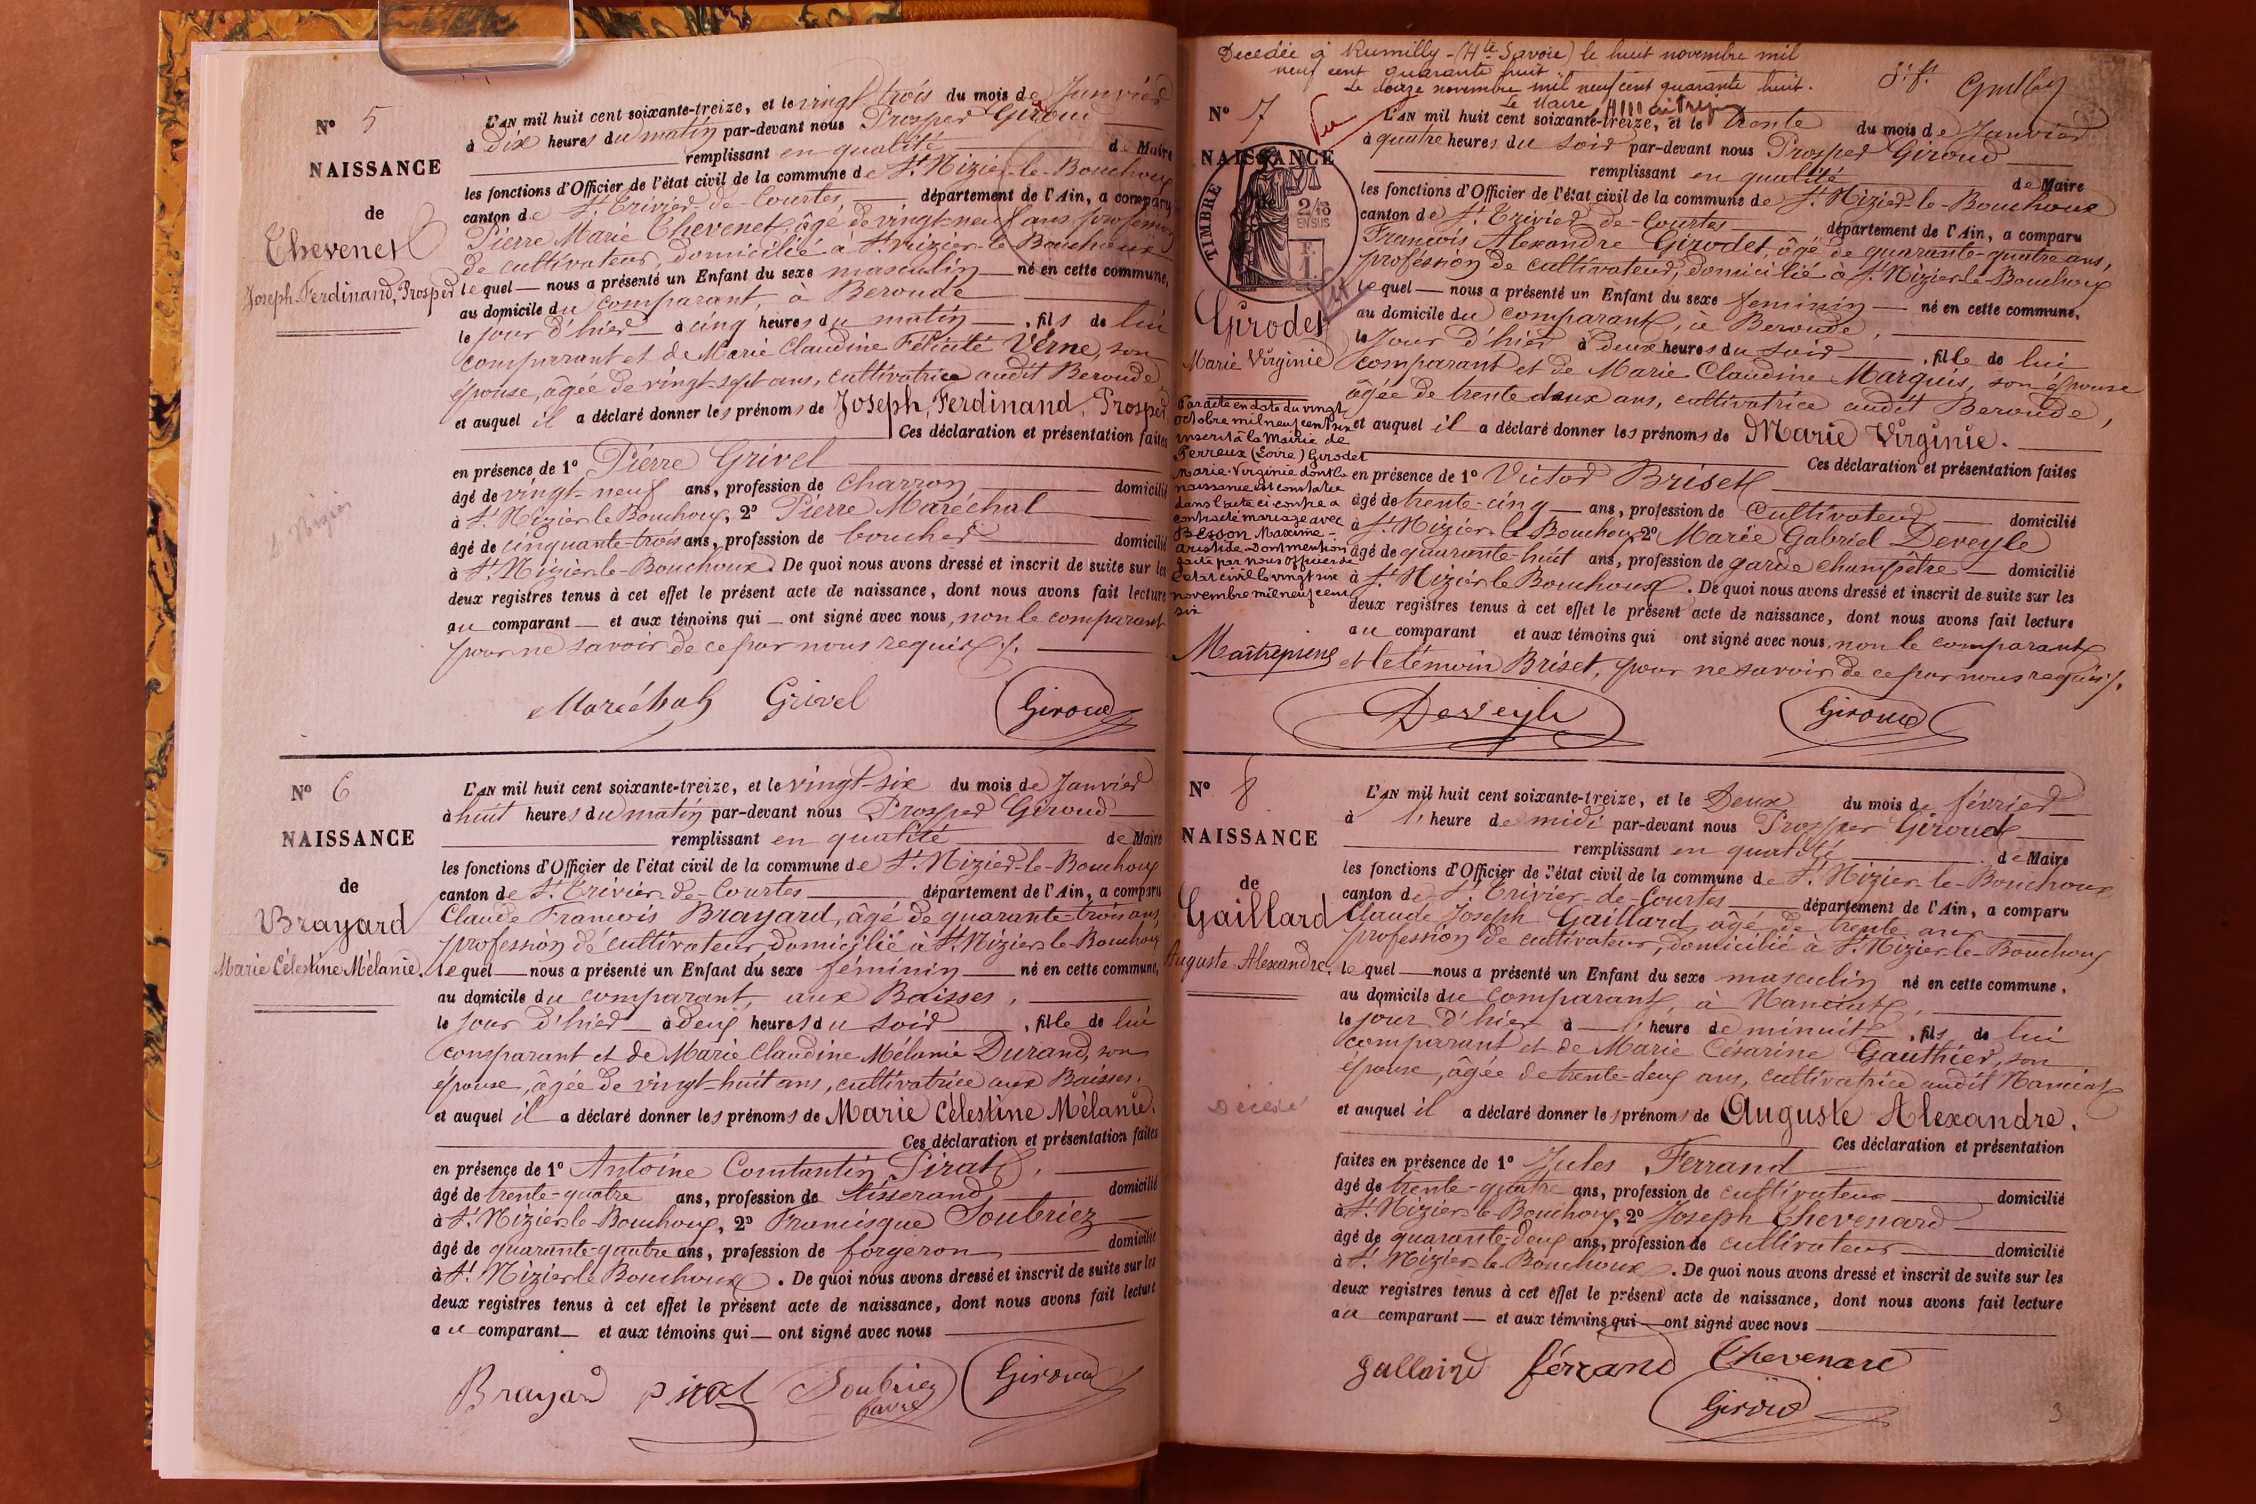 N° 5
NAISSANCE
de
Thevenet
Joseph-Ferdinand, Prosper
L'AN mil huit cent soixante-treize, et le vingt trois du mois de Janvier
à Dix heures du matin par-devant nous Prosper Giroud
remplissant en qualité de Maire
les fonctions d'Officier de l'état civil de la commune de St Nizier-le-Bouchoux
canton de St Trivier-de-Courtes, département de l'Ain, a comparu
Pierre Marie Thevenet, âgé de vingt-neuf ans, profession
de cultivateur, domicilié à St Nizier-le-Bouchoux
lequel nous a présenté un Enfant du sexe masculin né en cette commune,
au domicile du comparant, à Beroude
le jour d'hier à cinq heures du matin, fils de lui
comparant et de Marie Claudine Félicité Verne, son
épouse, âgée de vingt-sept ans, cultivatrice audit Beroude
et auquel il a déclaré donner les prénoms de Joseph, Ferdinand, Prosper
Ces déclaration et présentation faites
en présence de 1° Pierre Grivel
âgé de vingt-neuf ans, profession de charron domicilié
à St Nizier le Bouchoux, 2° Pierre Maréchal
âgé de cinquante-trois ans, profession de boucher domicilié
à St Nizier-le-Bouchoux. De quoi nous avons dressé et inscrit de suite sur les
deux registres tenus à cet effet le présent acte de naissance, dont nous avons fait lecture
au comparant et aux témoins qui ont signé avec nous, non le comparant
pour ne savoir de ce par nous requis.
Maréchal Grivel Giroud
St Nizier
N° 6
NAISSANCE
de
Brayard
Marie Célestine Mélanie.
L'AN mil huit cent soixante-treize, et le vingt-six du mois de Janvier
à huit heures du matin par-devant nous Prosper Giroud
remplissant en qualité de Maire
les fonctions d'Officier de l'état civil de la commune de St Nizier-le-Bouchoux
canton de St Trivier-de-Courtes département de l'Ain, a comparu
Claude François Brayard, âgé de quarante-trois ans,
profession de cultivateur, domicilié à St Nizier-le-Bouchoux
lequel nous a présenté un Enfant du sexe féminin né en cette commune,
au domicile du comparant, aux Baisses,
le jour d'hier à deux heures du soir, fille de lui
comparant et de Marie Claudine Mélanie Durand, son
épouse, âgée de vingt-huit ans, cultivatrice aux Baisses.
et auquel il a déclaré donner les prénoms de Marie Célestine Mélanie.
Ces déclaration et présentation faites
en présence de 1° Antoine Constantin Pirat,
âgé de trente-quatre ans, profession de tisserand domicilié
à St Nizier-le-Bouchoux, 2° Francisque Soubriez
âgé de quarante-quatre ans, profession de forgeron domicilié
à St Nizier le Bouchoux. De quoi nous avons dressé et inscrit de suite sur les
deux registres tenus à cet effet le présent acte de naissance, dont nous avons fait lecture
au comparant et aux témoins qui ont signé avec nous
Brayard pirat Soubriez Giroud
Decedée à Rumilly-(Hte Savoie) le huit novembre mil
neuf cent quarante huit
Le douze novembre mil neuf cent quarante huit.
Le Maire
N° 7
Vu
NAISSANCE
TIMBRE
2/10
EN SUS
F.
1.
Girodet
Marie Virginie
L'AN mil huit cent soixante-treize, et le trente du mois de Janvier
à quatre heures du soir par-devant nous Prosper Giroud
remplissant en qualité de Maire
les fonctions d'Officier de l'état civil de la commune de St Nizier-le-Bouchoux
canton de St Trivier-de-Courtes département de l'Ain, a comparu
François Alexandre Girodet, âgé de quarante-quatre ans,
profession de cultivateur, domicilié à St Nizier-le-Bouchoux
lequel nous a présenté un Enfant du sexe feminin né en cette commune,
au domicile du comparant, à Beroude,
le Jour d'hier à deux heures du soir, fille de lui
comparant et de Marie Claudine Marguis, son épouse
âgée de trente deux ans, cultivatrice audit Beroude,
et auquel il a déclaré donner les prénoms de Marie Virginie.
Ces déclaration et présentation faites
en présence de 1° Victor Briset
âgé de trente-cinq ans, profession de cultivateur domicilié
à St Nizier-le Bouchoux, 2° Marie Gabriel Deveyle
âgé de quarante-huit ans, profession de garde champêtre domicilié
à St Nizier le Bouchoux. De quoi nous avons dressé et inscrit de suite sur les
deux registres tenus à cet effet le présent acte de naissance, dont nous avons fait lecture
au comparant et aux témoins qui ont signé avec nous, non le comparant
et le témoin Briset, pour ne savoir de ce par nous requis.
Deveyle Giroud
Par acte en date du vingt
octobre mil neuf cent six
inscrit à la Mairie de
Perreux (Loire) Girodet
Marie-Virginie dont la
naissance est constatée
dans l'acte ci contre a
contracté mariage avec
Besson Maxime-
Aristide. Dont mention
faite par nous officier de
l'état civil le vingt six
novembre mil neuf cent
six
N° 8
NAISSANCE
de
Gaillard
Auguste Alexandre.
Décédé
L'AN mil huit cent soixante-treize, et le Deux du mois de février
à l'heure de midi par-devant nous Prosper Giroud
remplissant en qualité de Maire
les fonctions d'Officier de l'état civil de la commune de St Nizier-le-Bouchoux
canton de St Trivier-de-Courtes département de l'Ain, a comparu
Claude Joseph Gaillard, âgé de trente ans
profession de cultivateur, domicilié à St Nizier-le-Bouchoux
lequel nous a présenté un Enfant du sexe masculin né en cette commune,
au domicile du comparant, à Nanciat,
le jour d'hier à l'heure de minuit, fils de lui
comparant et de Marie Césarine Gauthier, son
épouse, âgée de trente-deux ans, cultivatrice audit Nanciat
et auquel il a déclaré donner les prénoms de Auguste Alexandre.
Ces déclaration et présentation
faites en présence de 1° Jules Ferrand
âgé de trente-quatre ans, profession de cultivateur domicilié
à St Nizier-le-Bouchoux, 2° Joseph Chevenard
âgé de quarante-deux ans, profession de cultivateur domicilié
à St Nizier-le-Bouchoux. De quoi nous avons dressé et inscrit de suite sur les
deux registres tenus à cet effet le présent acte de naissance, dont nous avons fait lecture
au comparant et aux témoins qui ont signé avec nous
gallaird férrand Chevenard
Giroud
3